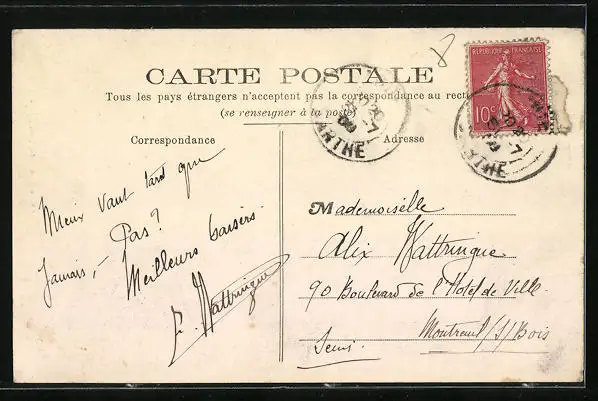 CARTE POSTALE
Tous les pays étrangers n'acceptent pas la correspondance au rect
(se renseigner à la poste)
Correspondance
Adresse
RÉPUBLIQUE FRANÇAISE
10c
ARTHE
Mieux vaut tard que
Jamais, - Pas?
Meilleurs baisers.
Wattringue
Mademoiselle
Alix Wattringue
90 Boulevard de l'Hotel de Ville
Montreuil/S/Bois
Seine